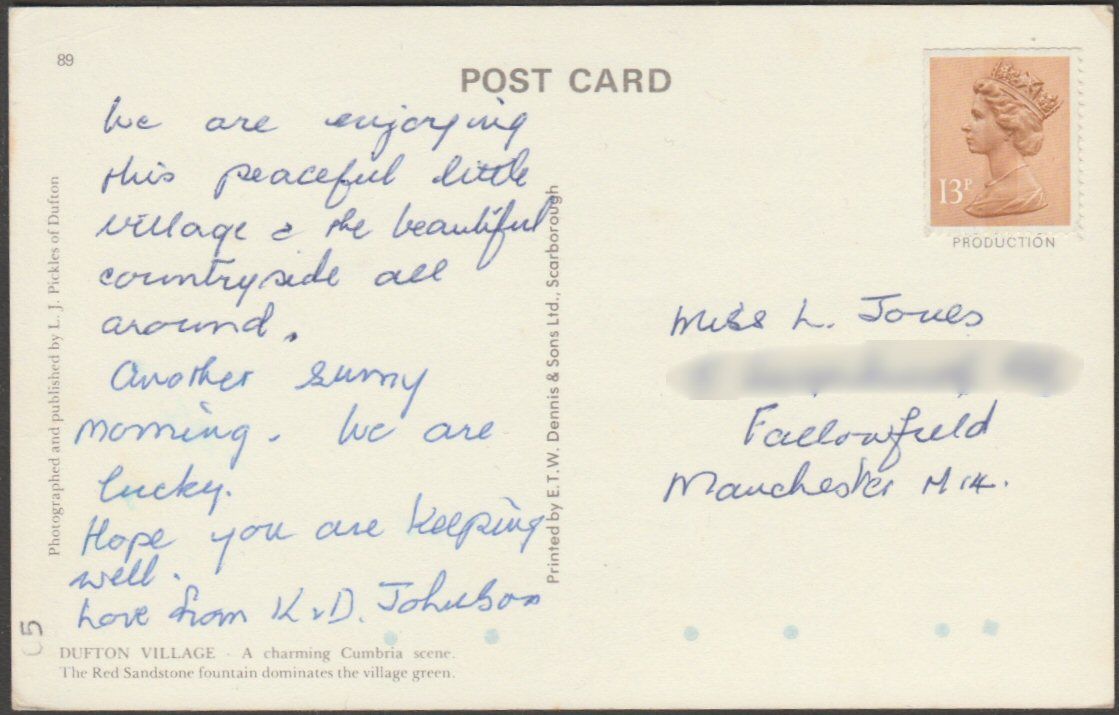 89
POST CARD
We are enjoying
this peaceful little
village & the beautiful
countryside all
around.
Another sunny
morning. We are
lucky.
Hope you are keeping
well.
Love from K & D. Johnson
DUFTON VILLAGE - A charming Cumbria scene.
The Red Sandstone fountain dominates the village green.
Photographed and published by L. J. Pickles of Dufton
Printed by E.T.W. Dennis & Sons Ltd., Scarborough
13P
PRODUCTION
Miss L. Jones
Fallowfield
Manchester M14.